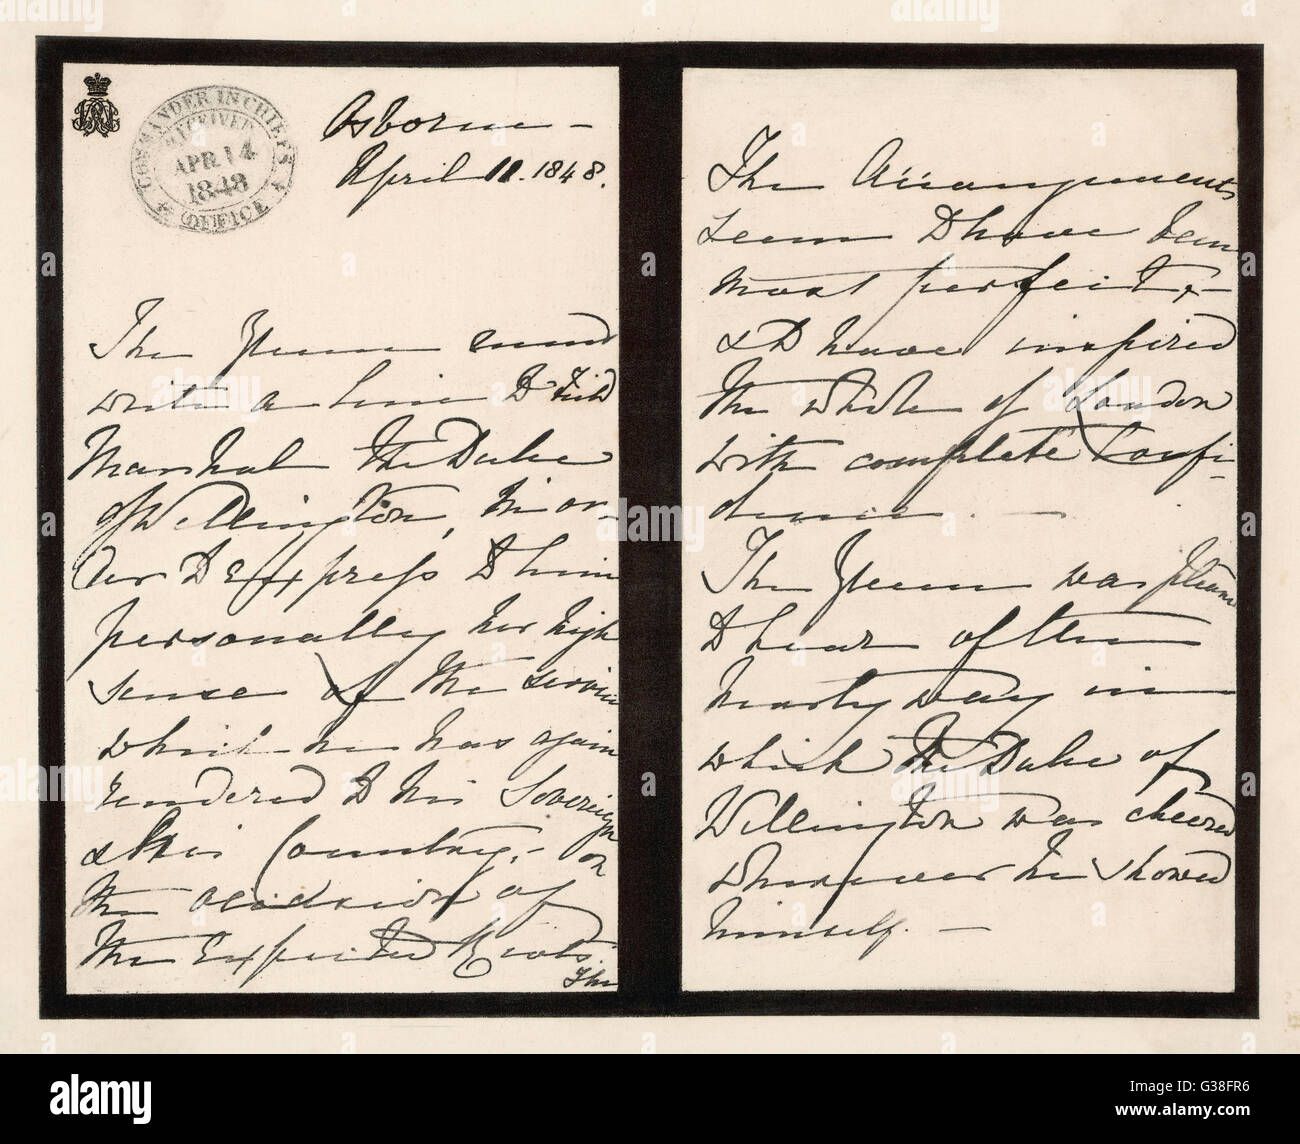 COMMANDER IN CHIEF'S
RECEIVED
APR 14
1848
OFFICE
Osborne –
April 11. 1848.
The Queen must
write a line to Field
Marshal the Duke
of Wellington, in or-
der to Express to him
personally her high
sense of the service
which he has again
rendered to his Sovereign
& this Country, – on
the occasion of
the Expected Riots.
The
The Arrangements
seem to have been
most perfect, –
& to have inspired
the whole of London
with complete Confi-
dence. –
The Queen was pleased
to hear of the
hearty way in
which the Duke of
Wellington was cheered
whenever he showed
himself. –
alamy
alamy stock photo
Image ID: G38FR6
www.alamy.com